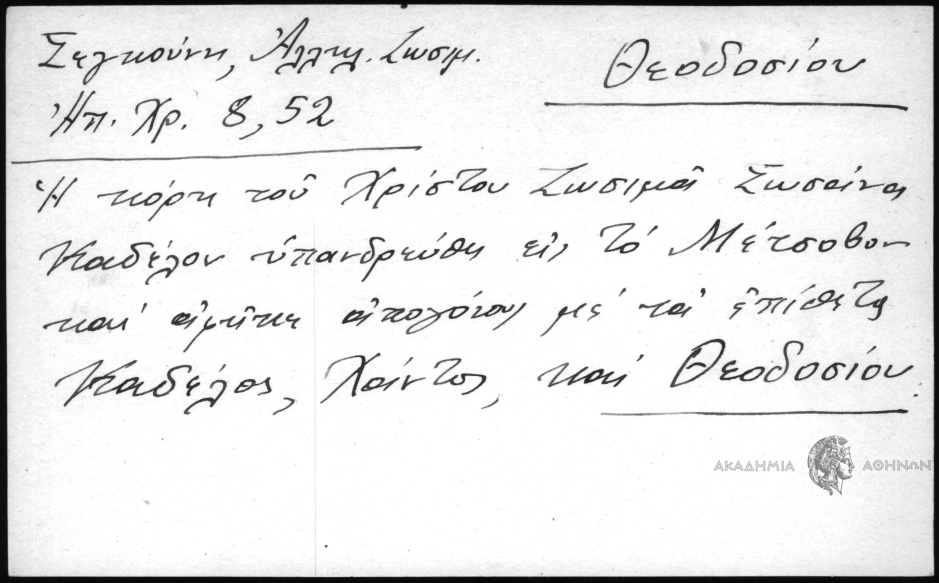 Σεγκούνη, Ἀλληλ. Ζωσιμ.
Θεοδοσίου
Ἠπ. Χρ. 8, 52
Ἡ κόρη τοῦ Χρίστου Ζωσιμᾶ
Καδέλον ὑπανδρεύθη εἰς τό Μέτσοβον
καί ἀφῆκε ἀπογόνους μέ τά ἐπίθετα
Καδέλος, Χάντος, καί Θεοδοσίου.
ΑΚΑΔΗΜΙΑ ΑΘΗΝΩΝ